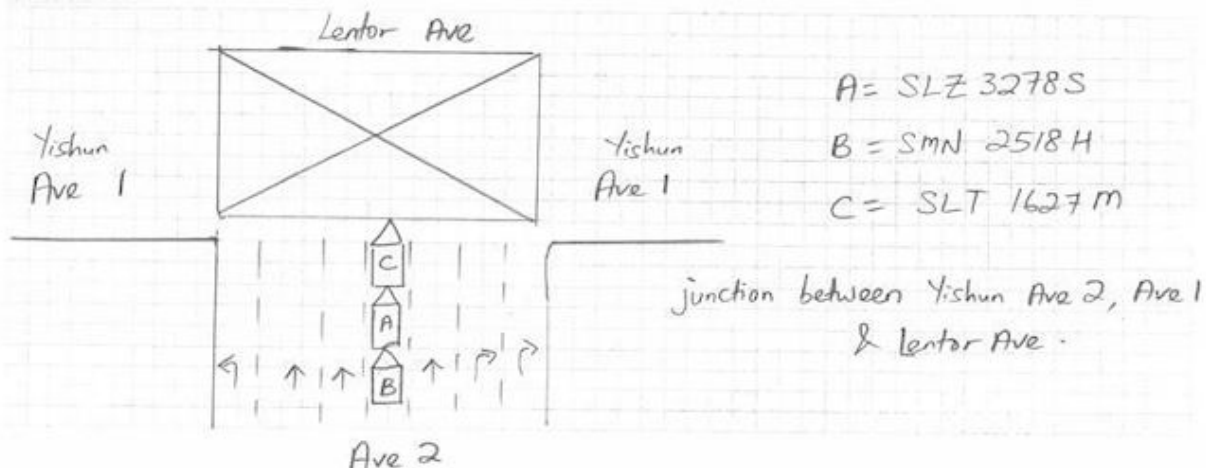 Lentor Ave
Yishun
Ave 1
Yishun
Ave 1
A = SLZ 3278S
B = SMN 2518H
C = SLT 1627M
junction between Yishun Ave 2, Ave 1
& Lentor Ave.
C
A
B
Ave 2